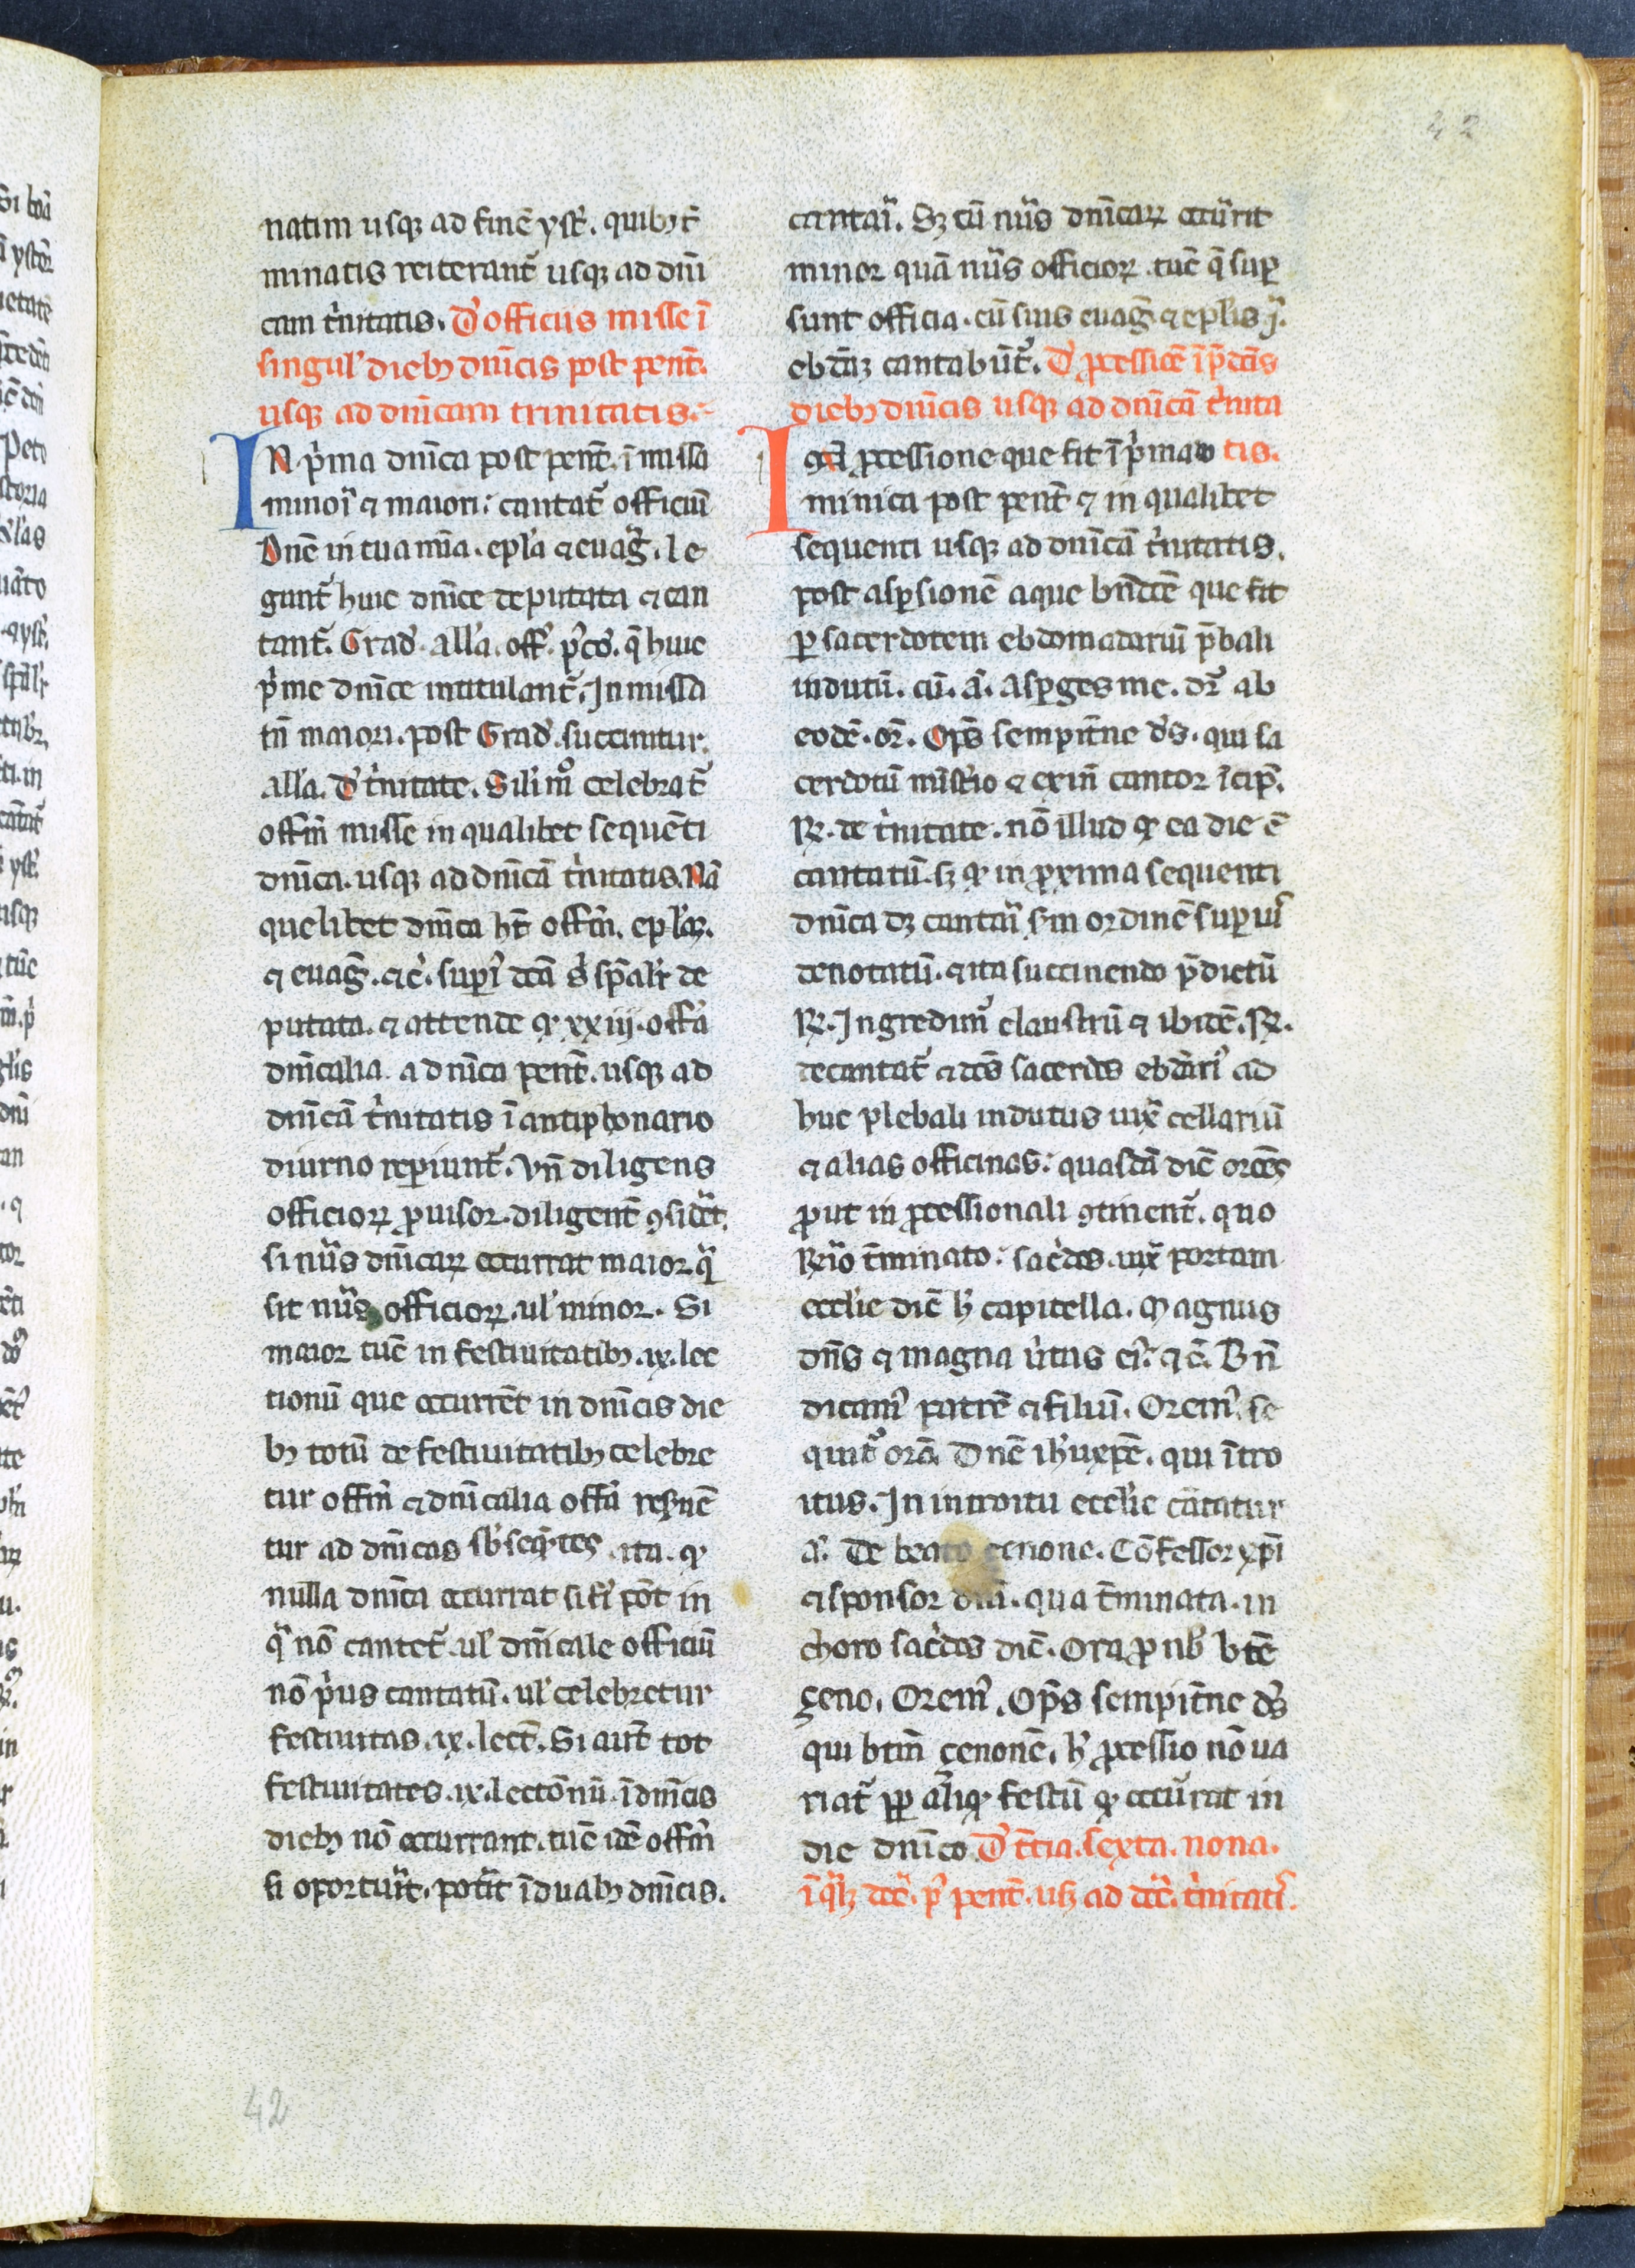 natim usqꝫ ad finē yst̄. quibꝫ t̄
minatis reiterant̄ usqꝫ ad dn̄i
cam t̓nitatis. D̓ officiis misse ī
singul̓ diebꝫ dn̄icis post pent̄.
usqꝫ ad dn̄icam trinitatis.
IN p̓ma dn̄ica post pent̄. ī missa
minori ⁊ maiori: cantat᷑ officiū
Dn̄e in tua mīa. epl̓a ⁊ euāg. le
gunt᷑ huic dn̄ice deputata ⁊ can
tant᷑. Grad̓. all̓a. off̓. p̓co. q̄ huic
p̓me dn̄ice intitulant᷑. In missa
tn̄ maiori. post Grad̓. succinitur.
all̓a. D̓ t̓nitate. Sil̓i mͦ celebrat᷑
offm̄ misse in qualibet sequēti
dn̄ica. usqꝫ ad dn̄icā t̓nitatis. Nā
quelibet dn̄ica ht̄ offm̄. epl̓aꝝ.
⁊ euāg. ⁊c̓. sup̓i dc̄a s̓ sp̄al̓r de
putata. ⁊ attende ꝙ xxiij. offā
dn̄icalia. a dn̄ica pent̄. usqꝫ ad
dn̄icā t̓nitatis ī antiphonario
diurno rep̱iunt᷑. Vn̄ diligens
officioꝝ ꝓuisor. diligent̄ ꝯsid̓et.
si nūs dn̄icaꝝ occurrat maior qͣ
sit nūs officioꝝ. ul̓ minor. Si
maior tūc in festiuitatibꝫ. ix. lec
tionū que occurrēt in dn̄icis die
bꝫ totū de festiuitatibꝫ celebre
tur offm̄ ⁊ dn̄icalia offā res̓uē
tur ad dn̄icas sb̓seqͣtes. ita. ꝙ
nulla dn̄ica occurrat si fi̓ pōt in
qͣ nō cantet᷑. ul̓ dn̄icale officiū
nō p̓us cantatū. ul̓ celebretur
festiuitas. ix. lect̄. Si aut̄ tot
festiuitates. ix. lectōnū. ī dn̄icis
diebꝫ nō occurrant. tūc idē offm̄
si oportūit. pot̓it ī duabꝫ dn̄icis.
cantari. Sꝫ cū nūs dn̄icaꝝ occūrit
minor quā nūs officioꝝ. tūc q̄ sup̱
sunt officia. cū suis euāg. ⁊ epl̓is ī.
ebdāꝫ cantabūt᷑. D̓ ꝓcessiōe ī p̄dc̄is
diebꝫ dn̄icis usqꝫ ad dn̄icā t̓nita
IN ꝓcessione que fit ī p̓ma do tis.
minica post pent̄ ⁊ in qualibet
sequenti usqꝫ ad dn̄icā t̓nitatis.
post asp̱sionē aque bn̄dc̄e que fit
p̱ sacerdotem ebdomadariū p̄bali
indutū. cū. ā. Asp̱ges me. dr̄ ab
eodē. or̄. Op̄s sempit̄ne d̓s. qui sa
cerdotū mist̓io ⁊ exin̄ cantor īcip̄.
℞. de t̓nitate. nō illud ꝙ ea die ē
cantatū. sꝫ ꝙ in ꝓxima sequenti
dn̄ica dꝫ cantari sm̄ ordinē sup̱iu̓
denotatū. ⁊ ita succinendo p̄dictū
℞. Ingredim̓ claustrū ⁊ ibidē. ℞.
decantat᷑ ⁊ dc̄s sacerdos ebdāri̓ ad
huc plebali indutus iuxͣ cellariū
⁊ alias officinas: quasdā dic̄ orōes
ꝓut in ꝓcessionali ꝯtinent᷑. quo
℞rio t̄minato: sac̓dos. iuxͣ portam
eccl̓ie dic̄ h̓ capitella. Magnus
dn̄s ⁊ magna u̓tus ei̓: ⁊ c̄. Bn̄
dicam̓ patrē ⁊ filiū. Orem̓. se
quit᷑ orā. Dn̄e ih̓u xp̄e. qui ītro
itus. In introitu eccl̓ie cātatur
a. De beato çenone. Cōfessor xp̄i
⁊ sponsor dn̄i. qua t̄minata. in
choro sac̓dos dic̄. Ora ꝓ nb̓ bt̄e
çeno. Orem̓. Op̄s sempit̄ne d̓s
qui btm̄ çenonē. h̓ ꝓcessio nō ua
riat᷑ ꝓp̱ aliqͦ festū ꝙ occūrat in
die dn̄ico. D̓ t̄cia. sexta. nona.
ī qͥbꝫ dc̄. p̓ pent̄. usꝫ ad dc̄. t̓nitati̓.
42
42